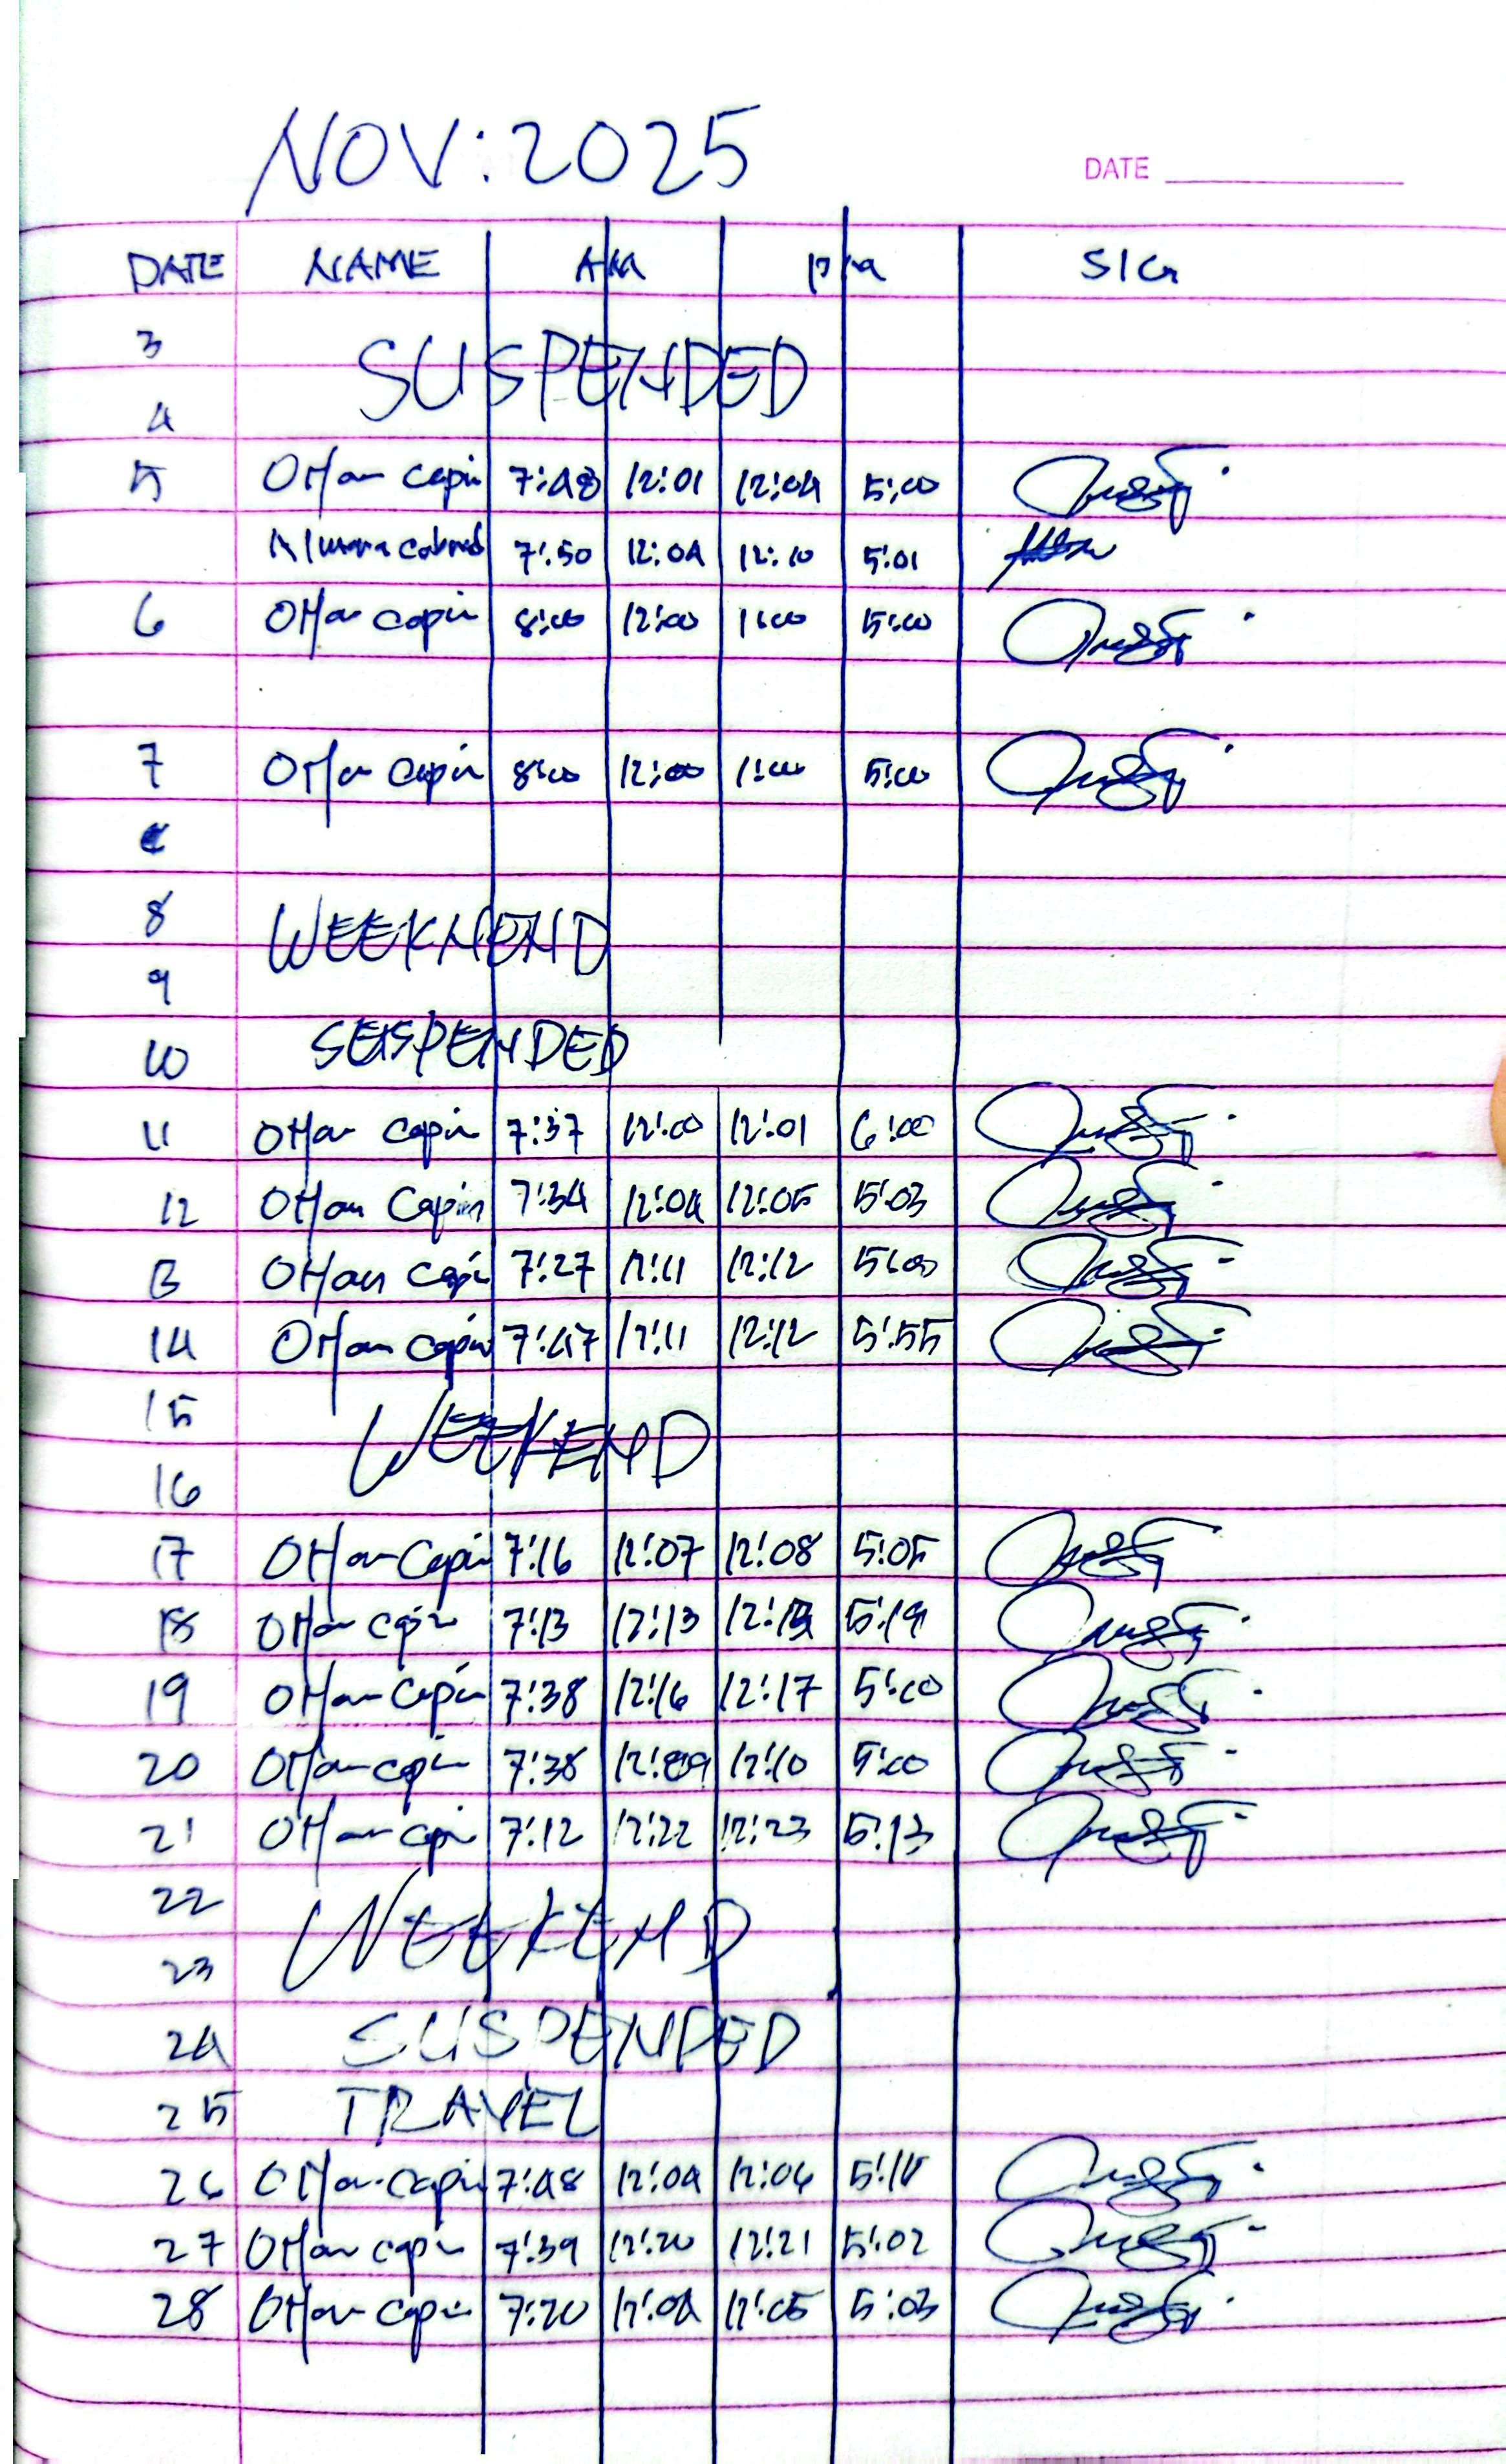 NOV: 2025
DATE
DATE NAME AM PM SIG
3
SUSPENDED
4
5 OMar Capin 7:48 12:01 12:04 5:00
7:50 12:04 12:10 5:01
6 OMar Capin 8:00 12:00 1:00 5:00
7 OMar Capin 8:00 12:00 1:00 5:00
8
WEEKNEND
9
10 SUSPENDED
11 OMar Capin 7:37 12:00 12:01 6:00
12 OMar Capin 7:34 12:04 12:05 5:03
13 OMar Capin 7:27 12:11 12:12 5:00
14 OMar Capin 7:47 12:11 12:12 5:55
15
WEEKEND
16
17 OMar Capin 7:16 12:07 12:08 5:05
18 OMar Capin 7:13 12:13 12:14 5:19
19 OMar Capin 7:38 12:16 12:17 5:00
20 OMar Capin 7:38 12:09 12:10 5:00
21 OMar Capin 7:12 12:22 12:23 5:13
22
WEEKEND
23
24 SUSPENDED
25 TRAVEL
26 OMar Capin 7:48 12:04 12:06
27 OMar Capin 7:39 12:20 12:21 5:02
28 OMar Capin 7:20 12:04 12:05 5:03